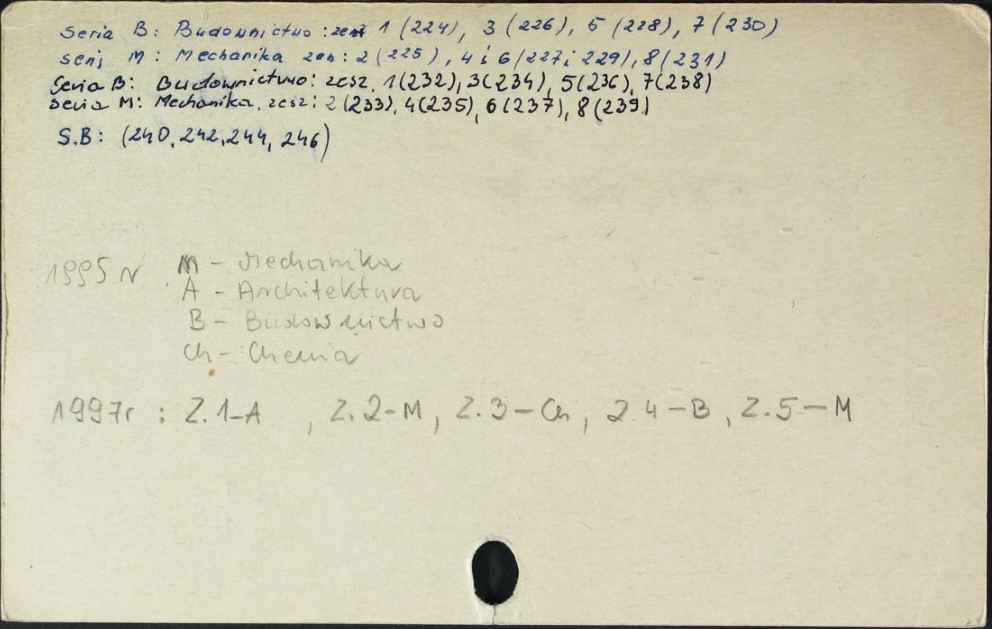 Seria B: Budownictwo: zesz 1 (224), 3 (226), 5 (228), 7 (230)
serij M: Mechanika zesz: 2 (225), 4 i 6 (227 i 229), 8 (231)
Seria B: Budownictwo: zesz. 1(232), 3(234), 5(236), 7(238)
Seria M: Mechanika, zesz: 2(233), 4(235), 6(237), 8(239)
S.B: (240, 242, 244, 246)
1995 r M - Mechanika
A - Architektura
B - Budownictwo
Ch - Chemia
1997r : Z.1-A , Z.2-M, Z.3-Ch, Z.4-B, Z.5-M